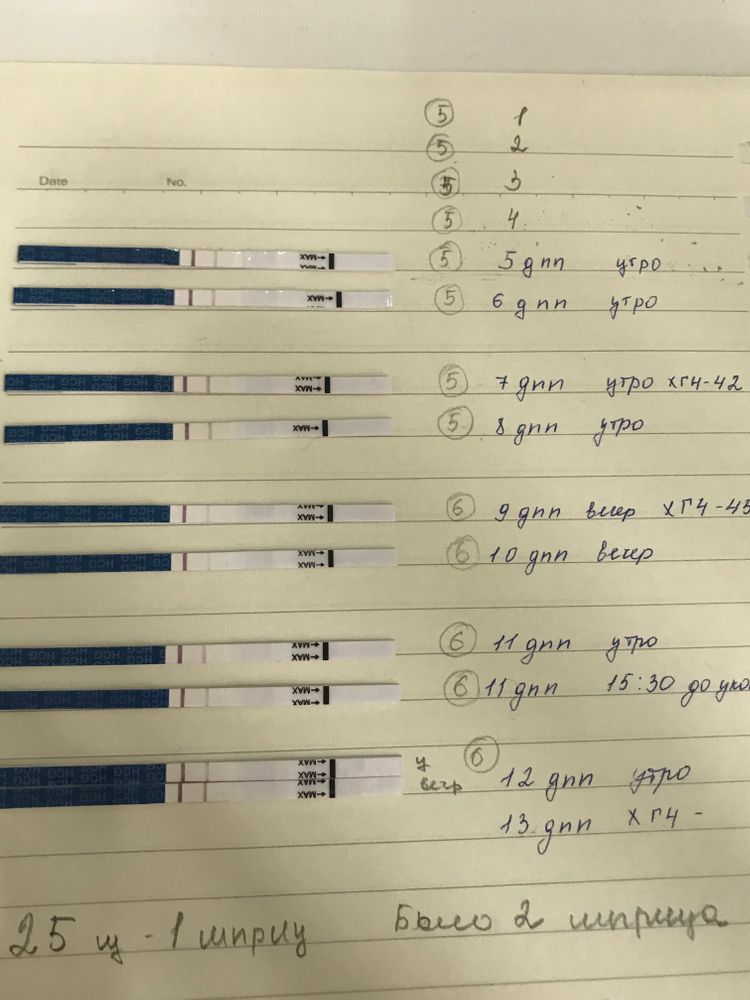 5 1
5 2
Date No.
5 3
5 4
MAX
5 5 дпп утро
MAX
5 6 дпп утро
MAX
MAX
5 7 дпп утро ХГЧ-42
HCG HCG HCG HCG
MAX
5 8 дпп утро
HCG HCG HCG HCG
MAX
MAX
6 9 дпп вечер ХГЧ-45
MAX
6 10 дпп вечер
MAX
MAX
6 11 дпп утро
MAX
MAX
6 11 дпп 15:30 до укол
MAX
MAX
MAX
MAX
у
вечр
6 12 дпп утро
13 дпп ХГЧ -
25 щ - 1 шприц Было 2 шприца